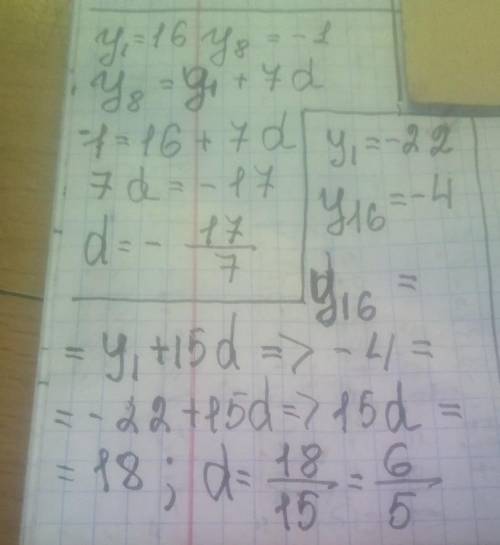 y₁=16 y₈ = -1
y₈ = y₁ + 7d
-1=16 + 7d
7d = - 17
d = - 17/7
y₁ = -22
y₁₆ = -4
y₁₆ =
= y₁ +15d => - 4 =
= - 22 +15d => 15d =
= 18 ; d = 18/15 = 6/5